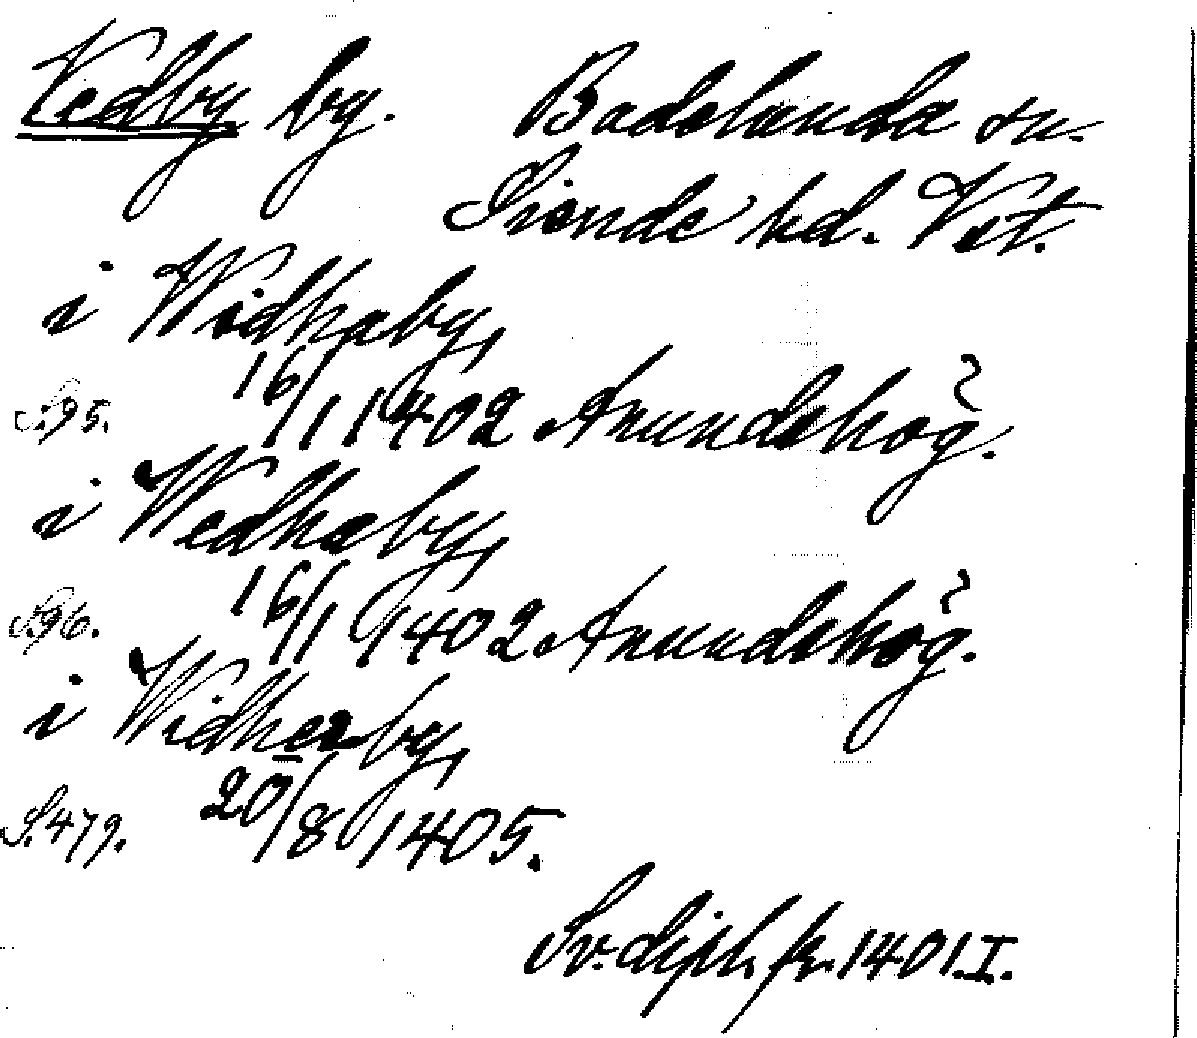 Vedby by. Badelunda sn.
Siende hd. Vst.
i Widhaby,
S. 95. 16/11 1402 Anundshög.
i Wedhæby,
S. 96. 16/1 1402 Anundshög.
i Widherby,
S. 479. 20/8 1405.
Sv. dipl. fr. 1401. I.